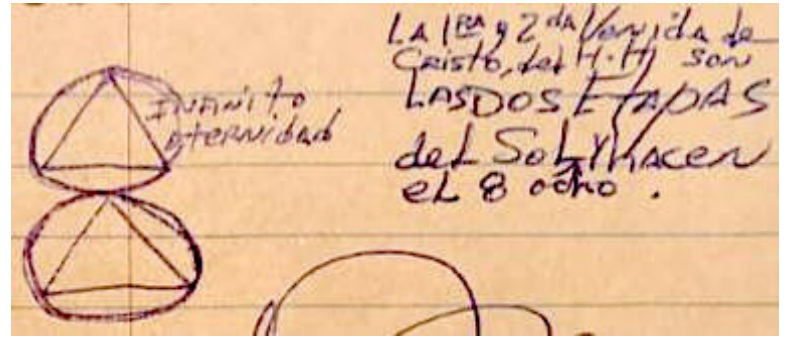 INFINITO
ETERNIDAD
LA 1ERA y 2da Venida de
Cristo, del H.H) son
LAS DOS ETAPAS
del SoL Y HACEN
eL 8 ocho.